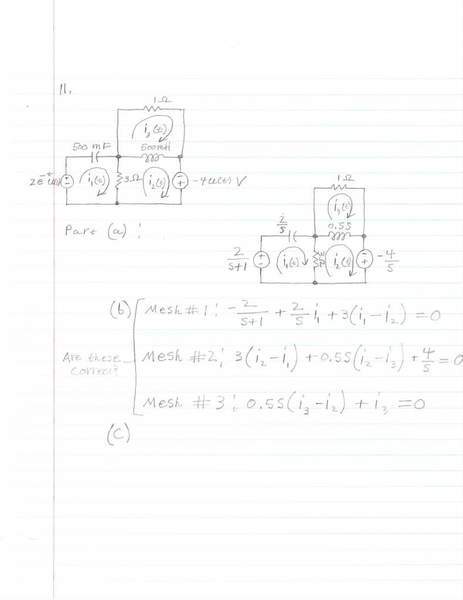 11.
1Ω
i₃(t)
500 mF
500mH
2e⁻ᵗu(t)
i₁(t)
3Ω
i₂(t)
-4u(t) V
Part (a) :
1Ω
i₃(s)
2/s
0.5s
2/s+1
i₁(s)
i₂(s)
-4/s
(b)
Mesh #1: -2/s+1 + 2/s i₁ + 3(i₁-i₂) = 0
Are these correct?
Mesh #2: 3(i₂-i₁) + 0.5s(i₂-i₃) + 4/s = 0
Mesh #3: 0.5s(i₃-i₂) + i₃ = 0
(C)